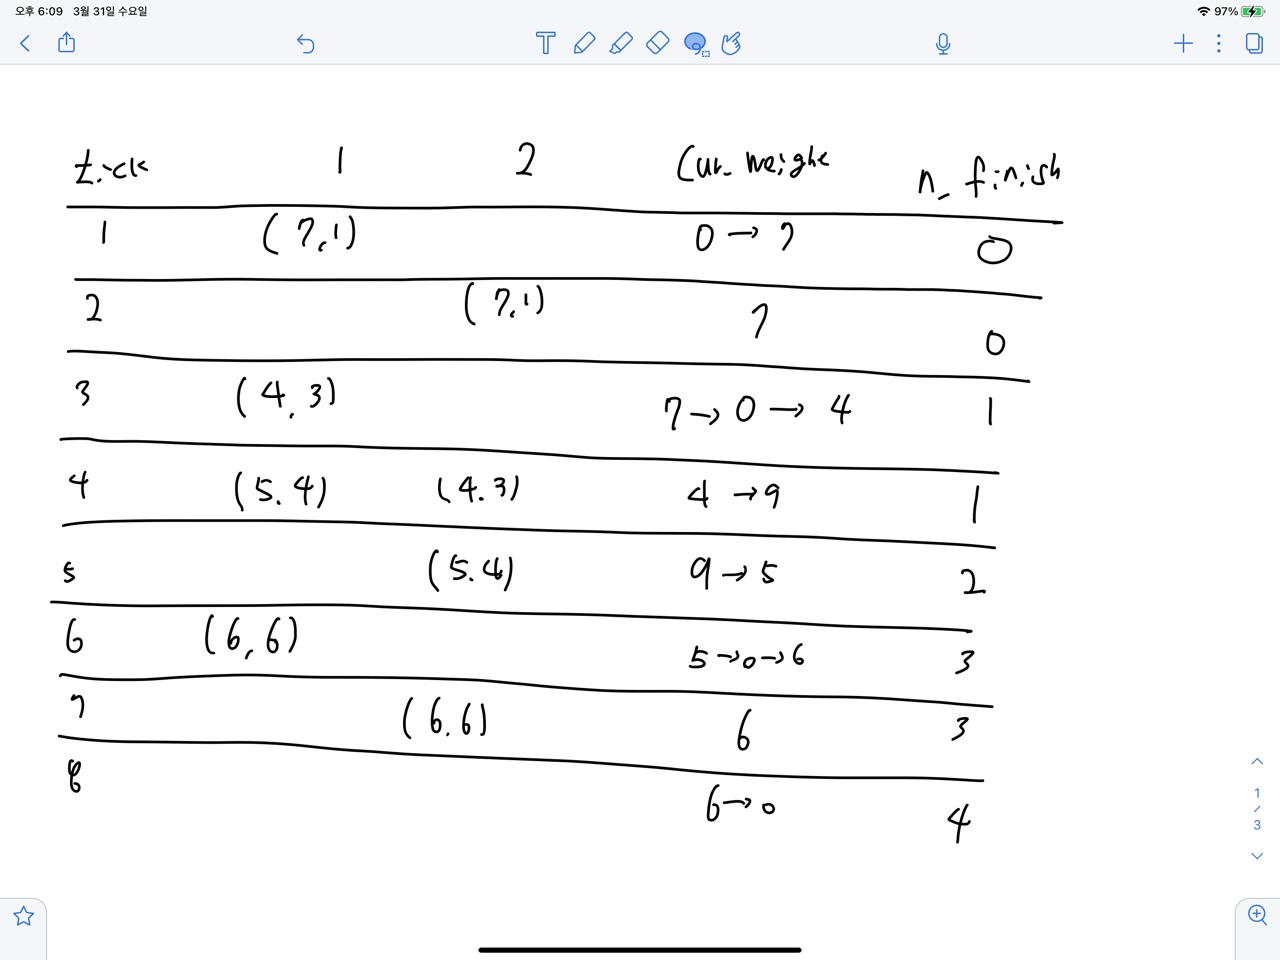 오후 6:09 3월 31일 수요일 97%
T
tick 1 2 Cur_weight n_finish
1 (7,1) 0 → 7 0
2 (7,1) 7 0
3 (4,3) 7 → 0 → 4 1
4 (5.4) (4.3) 4 → 9 1
5 (5.4) 9 → 5 2
6 (6,6) 5 → 0 → 6 3
7 (6.6) 6 3
8 6 → 0 4
1
/
3